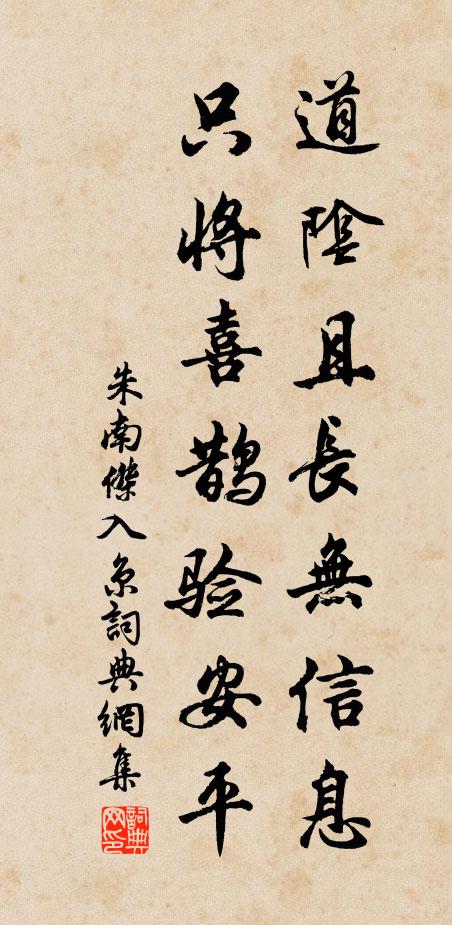 道陰且長無信息
只將喜鵲验安平
朱南傑入京詞典網集
詞典
网印